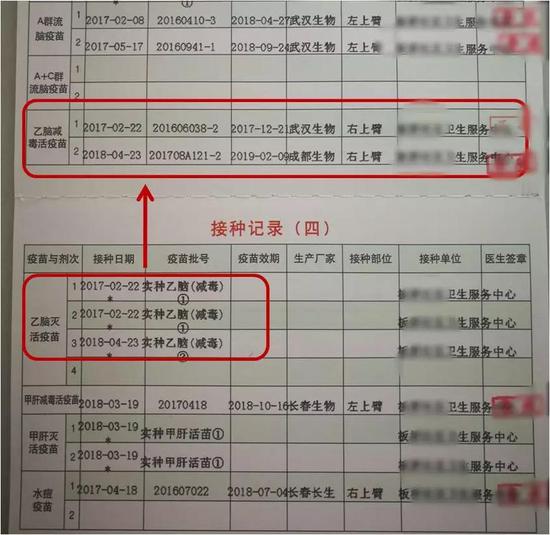 A群流脑疫苗 1 2017-02-08 20160410-3 2018-04-27 武汉生物 左上臂 卫生服
2 2017-05-17 20160941-1 2018-09-24 武汉生物 左上臂 卫生服务
A+C群流脑疫苗 1
2
乙脑减毒活疫苗 1 2017-02-22 201606038-2 2017-12-21 武汉生物 右上臂 卫生服务
2 2018-04-23 201708A121-2 2019-02-09 成都生物 右上臂 卫生服务中
接种记录（四）
疫苗与剂次 接种日期 疫苗批号 疫苗效期 生产厂家 接种部位 接种单位 医生签章
乙脑灭活疫苗 1 2017-02-22 * 实种乙脑(减毒)① 板 卫生服务中心
2 2017-02-22 * 实种乙脑(减毒)① 板 卫生服务中心
3 2018-04-23 * 实种乙脑(减毒)② 板 卫生服务中心
4
甲肝减毒活疫苗 2018-03-19 20170418 2018-10-16 长春生物 左上臂 板 卫生服务中心
甲肝灭活疫苗 1 2018-03-19 * 实种甲肝活苗① 板 卫生服务中心
2 2018-03-19 * 实种甲肝活苗① 板 卫生服务中心
水痘疫苗 1 2017-04-18 201607022 2018-07-04 长春长生 右上臂 板 卫生服务中心
2